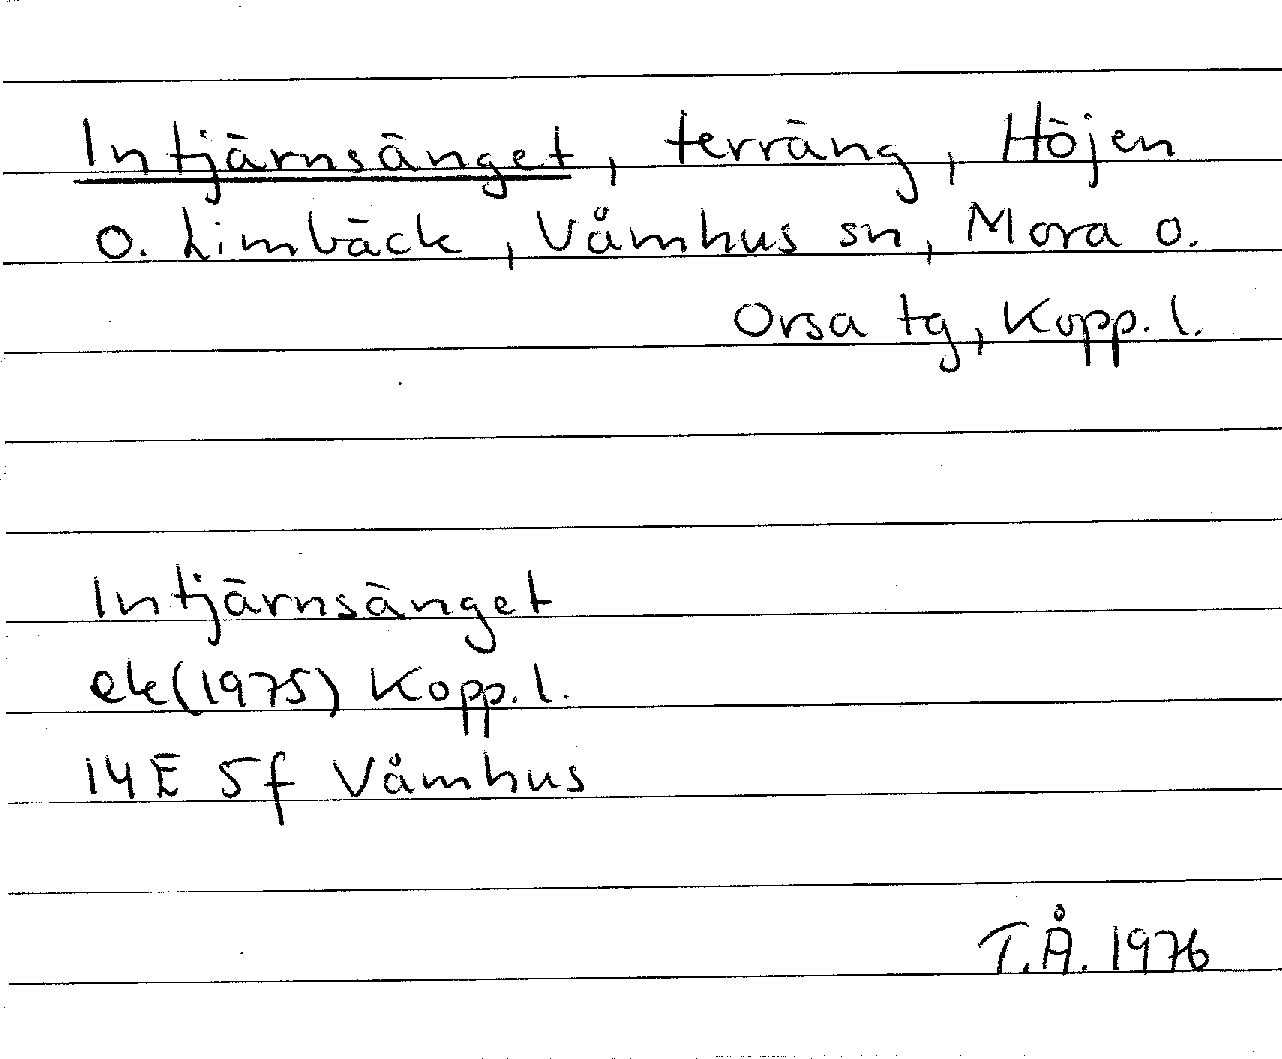 Intjärnsänget, terräng, Höjen
o. Limbäck, Våmhus sn, Mora o.
Orsa tg, Kopp. l.
Intjärnsänget
ek (1975) Kopp. l.
14E 5f Våmhus
T.Å. 1976